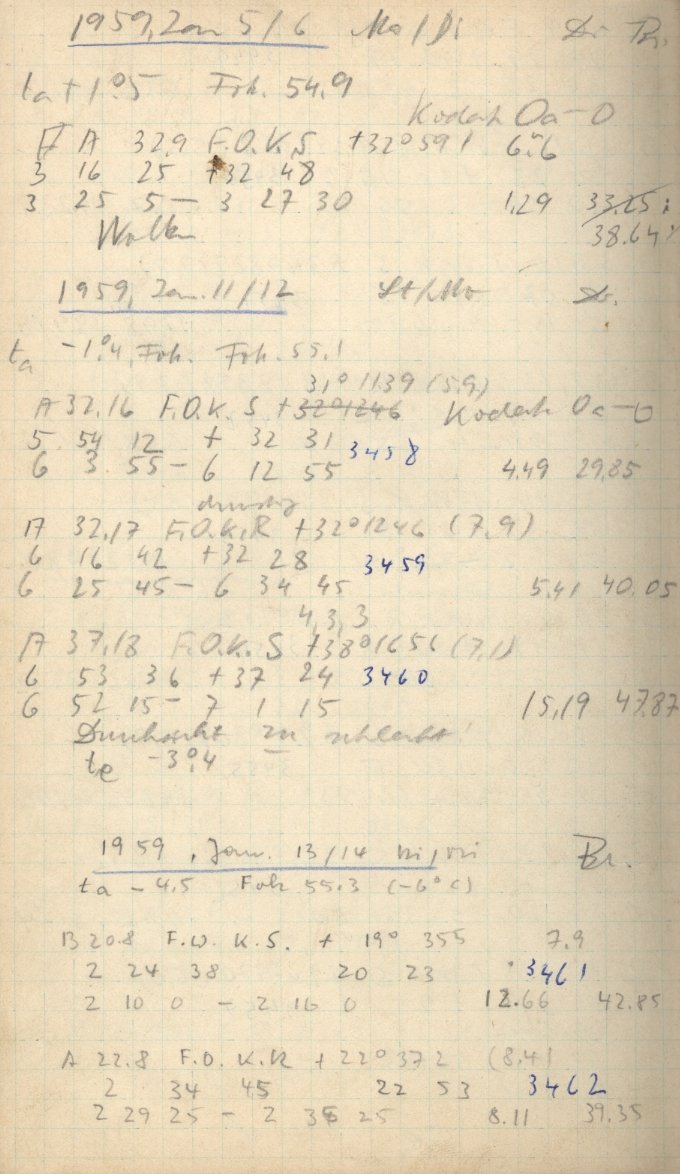 1959, Jan 5/6 Mo/Di Dr. Br.
ta +1°.5 Fok. 54.9
Kodak Oa-O
A 32.9 F.O.K.S +32°591 6.6
3 16 25 +32 48
3 25 5 - 3 27 30 1.29 33.25
Wolken 38.64
1959, Jan. 11/12 St/Mo Dr.
ta -1°.4, Fok. Fok. 55.1
31°1139 (5.9)
A 32.16 F.O.K.S +32°1246 Kodak Oa-O
5 54 12 + 32 31 3458
6 3 55 - 6 12 55 4.49 29.85
dunstig
A 32.17 F.O.K.R +32°1246 (7.9)
6 16 42 +32 28 3459
6 25 45 - 6 34 45 5.41 40.05
4, 3, 3
A 37.18 F.O.K.S +38°1656 (7.1)
6 53 36 +37 24 3460
6 52 15 - 7 1 15 15.19 47.87
Durchsicht zu schlecht!
te -3°.4
1959, Jan. 13/14 Br.
ta -4.5 Fok 55.3 (-6°C)
B 20.8 F.W.K.S. + 19° 355 7.9
2 24 38 20 23 3461
2 10 0 - 2 16 0 12.66 42.85
A 22.8 F.O.K.R + 22°372 (8.4)
2 34 45 22 53 3462
2 29 25 - 2 38 25 8.11 39.35